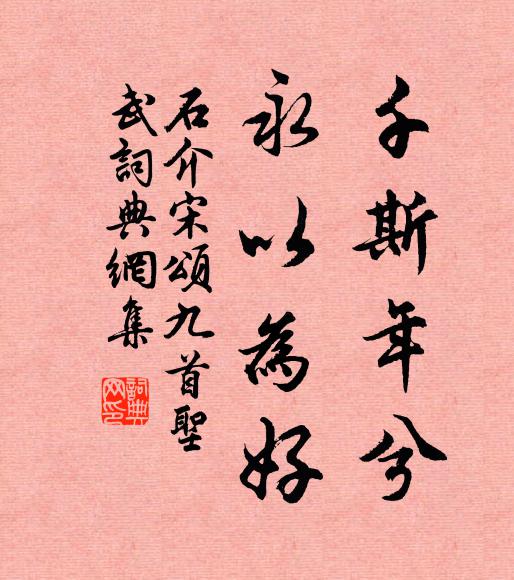 千斯年兮
永以為好
石介宋頌九首聖
武詞典網集
詞典網印